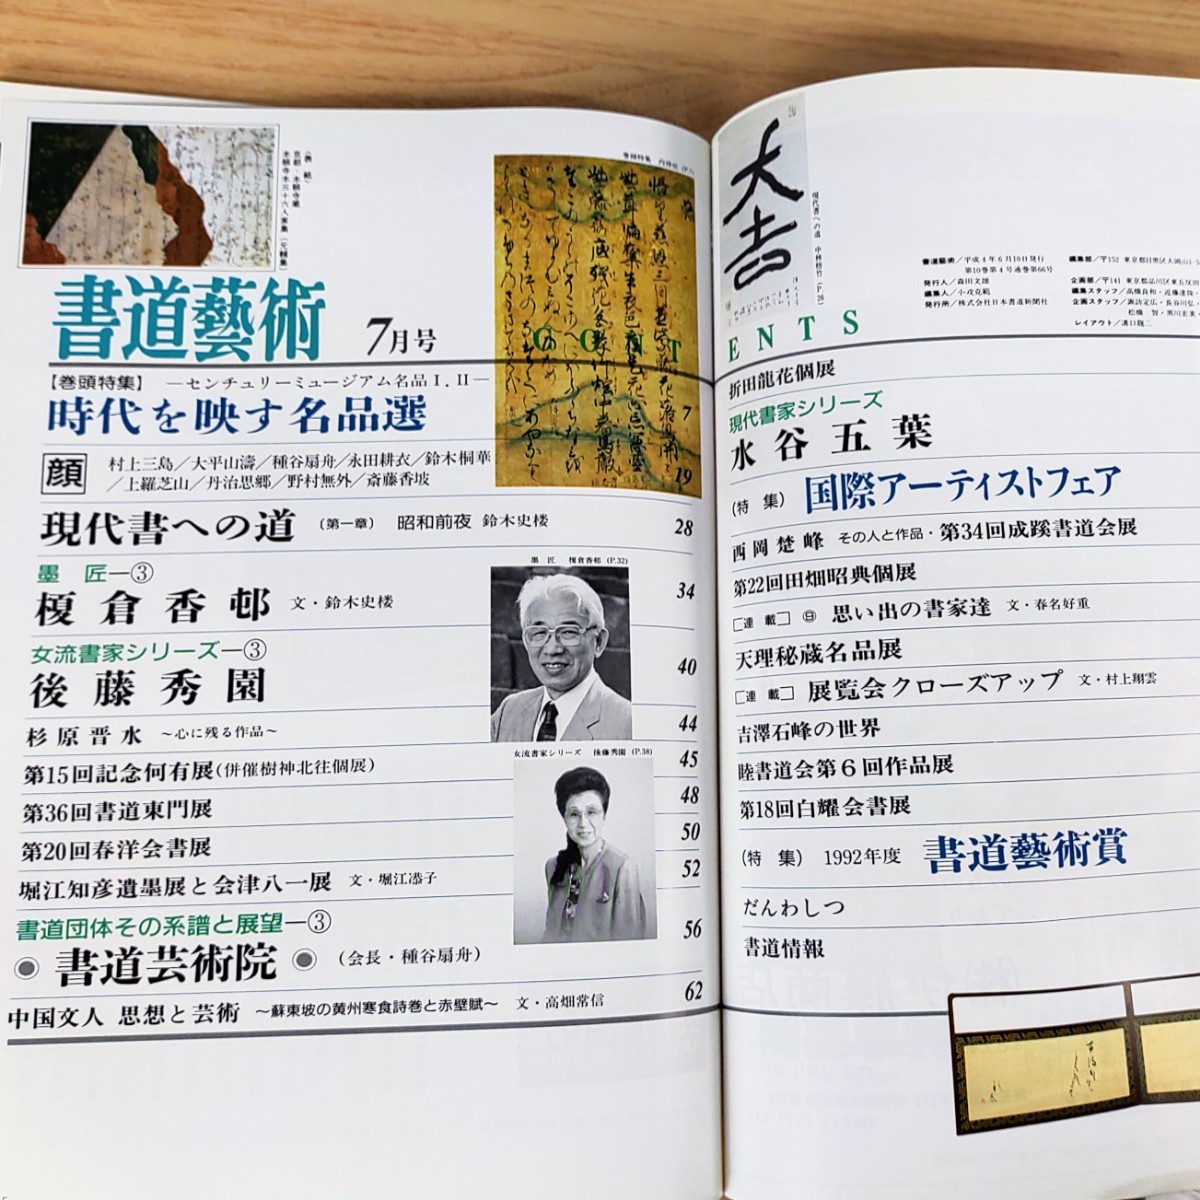 (表紙)
京都・本願寺蔵
本願寺本三十六人家集(元輔集)
書道藝術 7月号
【巻頭特集】 ―センチュリーミュージアム名品Ⅰ.Ⅱ―
時代を映す名品選
7
顔 村上三島／大平山濤／種谷扇舟／永田耕衣／鈴木桐華
／上羅芝山／丹治思郷／野村無外／斎藤香坡
19
現代書への道 (第一章) 昭和前夜 鈴木史楼 28
墨 匠―③
榎倉香邨 文・鈴木史楼 34
墨 匠 榎倉香邨(P.32)
女流書家シリーズ―③
後藤秀園 40
杉原晋水 ～心に残る作品～ 44
女流書家シリーズ 後藤秀園(P.38)
第15回記念何有展(併催樹神北往個展) 45
第36回書道東門展 48
第20回春洋会書展 50
堀江知彦遺墨展と会津八一展 文・堀江㳟子 52
書道団体その系譜と展望―③
書道芸術院 (会長・種谷扇舟) 56
中国文人 思想と芸術 ～蘇東坡の黄州寒食詩巻と赤壁賦～ 文・高畑常信 62
CONT
大吉
現代書への道 中林梧竹(P.28)
ENTS
書道藝術／平成4年6月10日発行
第10巻第4号通巻第66号
発行人／森田文雄
編集人／小戎克範
発行所／株式会社日本書道新聞社
編集部／〒152 東京都目黒区大岡山1-5
企画部／〒141 東京都品川区東五反田
編集スタッフ／高橋良和・近藤達哉
企画スタッフ／諏訪定広・長谷川弘・
松橋 智・黒川圭美・
レイアウト／溝口龍二
折田龍花個展
現代書家シリーズ
水谷五葉
(特 集) 国際アーティストフェア
西岡楚峰 その人と作品・第34回成蹊書道会展
第22回田畑昭典個展
[連 載] ⑨ 思い出の書家達 文・春名好重
天理秘蔵名品展
[連 載] 展覧会クローズアップ 文・村上翔雲
吉澤石峰の世界
睦書道会第6回作品展
第18回白耀会書展
(特 集) 1992年度 書道藝術賞
だんわしつ
書道情報